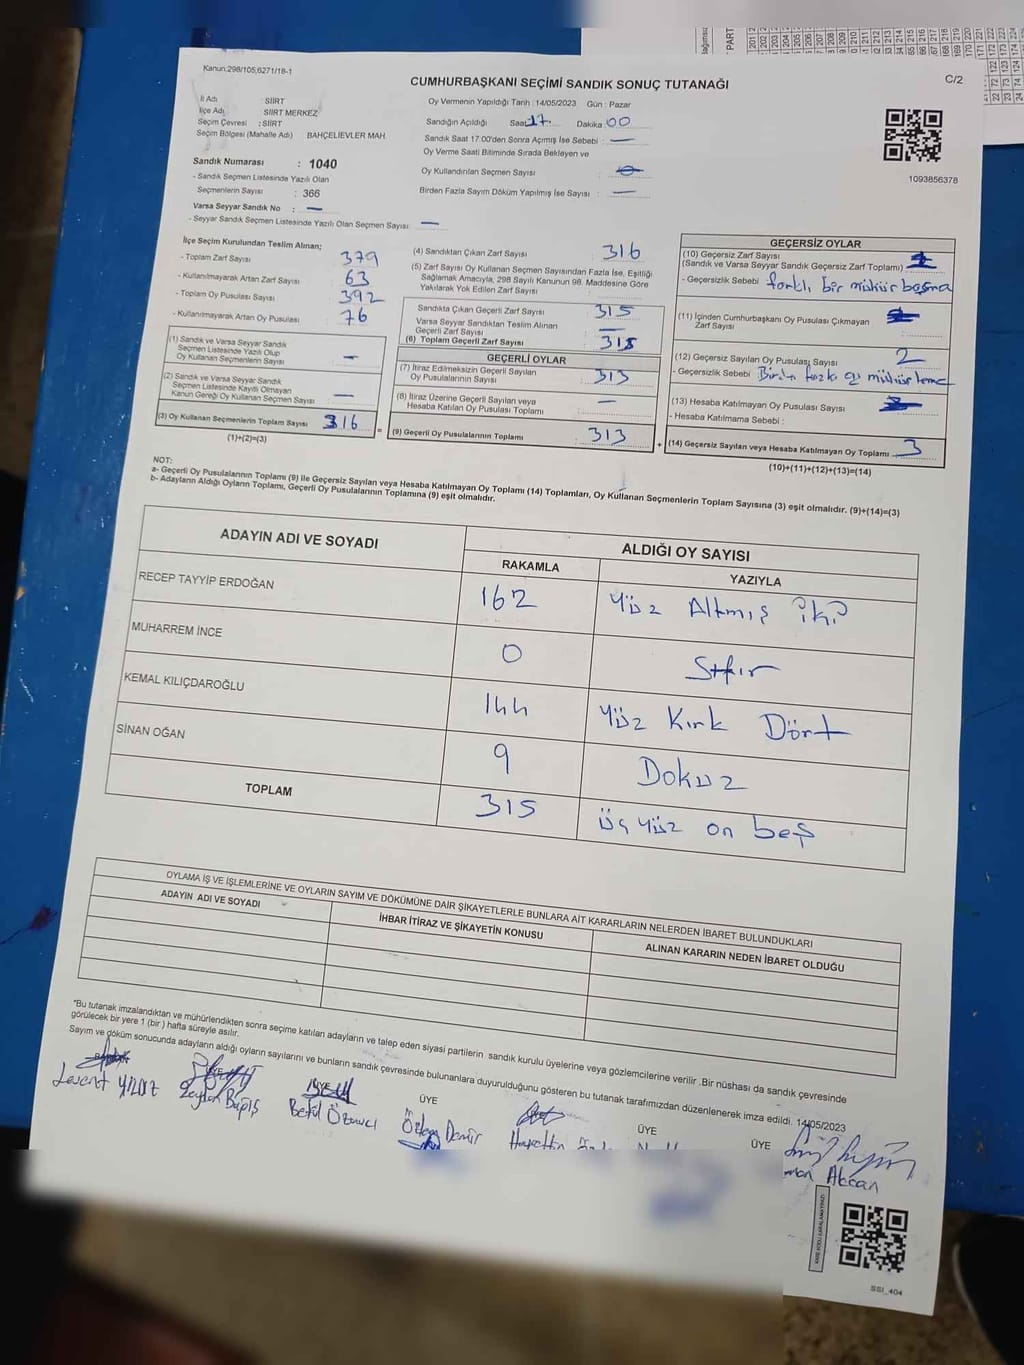 Kanun:298/105,6271/18-1
CUMHURBAŞKANI SEÇİMİ SANDIK SONUÇ TUTANAĞI
C/2
İl Adı : SİİRT
İlçe Adı : SİİRT MERKEZ
Seçim Çevresi : SİİRT
Seçim Bölgesi (Mahalle Adı) BAHÇELİEVLER MAH.
Sandık Numarası : 1040
- Sandık Seçmen Listesinde Yazılı Olan
Seçmenlerin Sayısı : 366
Varsa Seyyar Sandık No : —
- Seyyar Sandık Seçmen Listesinde Yazılı Olan Seçmen Sayısı —
Oy Vermenin Yapıldığı Tarih :14/05/2023 Gün : Pazar
Sandığın Açıldığı Saat 17 Dakika 00
Sandık Saat 17:00'den Sonra Açmış İse Sebebi : —
Oy Verme Saati Bitiminde Sırada Bekleyen ve
Oy Kullandırılan Seçmen Sayısı
Birden Fazla Sayım Döküm Yapılmış İse Sayısı : —
1093856378
İlçe Seçim Kurulundan Teslim Alınan;
- Toplam Zarf Sayısı 379
- Kullanılmayarak Artan Zarf Sayısı 63
- Toplam Oy Pusulası Sayısı 392
- Kullanılmayarak Artan Oy Pusulası 76
(1) Sandık ve Varsa Seyyar Sandık
Seçmen Listesinde Yazılı Olup
Oy Kullanan Seçmenlerin Sayısı —
(2) Sandık ve Varsa Seyyar Sandık
Seçmen Listesinde Kayıtlı Olmayan
Kanun Gereği Oy Kullanan Seçmen Sayısı —
(3) Oy Kullanan Seçmenlerin Toplam Sayısı 316
(1)+(2)=(3)
(4) Sandıktan Çıkan Zarf Sayısı 316
(5) Zarf Sayısı Oy Kullanan Seçmen Sayısından Fazla İse, Eşitliği
Sağlamak Amacıyla, 298 Sayılı Kanunun 98. Maddesine Göre
Yakılarak Yok Edilen Zarf Sayısı
Sandıkta Çıkan Geçerli Zarf Sayısı : 315
Varsa Seyyar Sandıktan Teslim Alınan
Geçerli Zarf Sayısı —
(6) Toplam Geçerli Zarf Sayısı : 315
GEÇERLİ OYLAR
(7) İtiraz Edilmeksizin Geçerli Sayılan
Oy Pusulalarının Sayısı : 313
(8) İtiraz Üzerine Geçerli Sayılan veya
Hesaba Katılan Oy Pusulası Toplamı : —
(9) Geçerli Oy Pusulalarının Toplamı : 313
GEÇERSİZ OYLAR
(10) Geçersiz Zarf Sayısı
(Sandık ve Varsa Seyyar Sandık Geçersiz Zarf Toplamı)
- Geçersizlik Sebebi farklı bir mühür basma
(11) İçinden Cumhurbaşkanı Oy Pusulası Çıkmayan
Zarf Sayısı
(12) Geçersiz Sayılan Oy Pusulası Sayısı 2
- Geçersizlik Sebebi
(13) Hesaba Katılmayan Oy Pusulası Sayısı
- Hesaba Katılmama Sebebi :
(14) Geçersiz Sayılan veya Hesaba Katılmayan Oy Toplamı 3
(10)+(11)+(12)+(13)=(14)
NOT:
a- Geçerli Oy Pusulalarının Toplamı (9) ile Geçersiz Sayılan veya Hesaba Katılmayan Oy Toplamı (14) Toplamları, Oy Kullanan Seçmenlerin Toplam Sayısına (3) eşit olmalıdır. (9)+(14)=(3)
b- Adayların Aldığı Oyların Toplamı, Geçerli Oy Pusulalarının Toplamına (9) eşit olmalıdır.
ADAYIN ADI VE SOYADI
ALDIĞI OY SAYISI
RAKAMLA YAZIYLA
RECEP TAYYİP ERDOĞAN 162 Yüz Altmış iki
MUHARREM İNCE 0 Sıfır
KEMAL KILIÇDAROĞLU 144 Yüz Kırk Dört
SİNAN OĞAN 9 Dokuz
TOPLAM 315 üç yüz on beş
OYLAMA İŞ VE İŞLEMLERİNE VE OYLARIN SAYIM VE DÖKÜMÜNE DAİR ŞİKAYETLERLE BUNLARA AİT KARARLARIN NELERDEN İBARET BULUNDUKLARI
ADAYIN ADI VE SOYADI İHBAR İTİRAZ VE ŞİKAYETİN KONUSU ALINAN KARARIN NEDEN İBARET OLDUĞU
*Bu tutanak imzalandıktan ve mühürlendikten sonra seçime katılan adayların ve talep eden siyasi partilerin sandık kurulu üyelerine veya gözlemcilerine verilir .Bir nüshası da sandık çevresinde
görülecek bir yere 1 (bir ) hafta süreyle asılır.
Sayım ve döküm sonucunda adayların aldığı oyların sayılarını ve bunların sandık çevresinde bulunanlara duyurulduğunu gösteren bu tutanak tarafımızdan düzenlenerek imza edildi. 14/05/2023
ÜYE ÜYE ÜYE ÜYE ÜYE
Levent YILDIZ Betül Özavcı Özlem Demir Hayrettin
Akcan
SSI_404